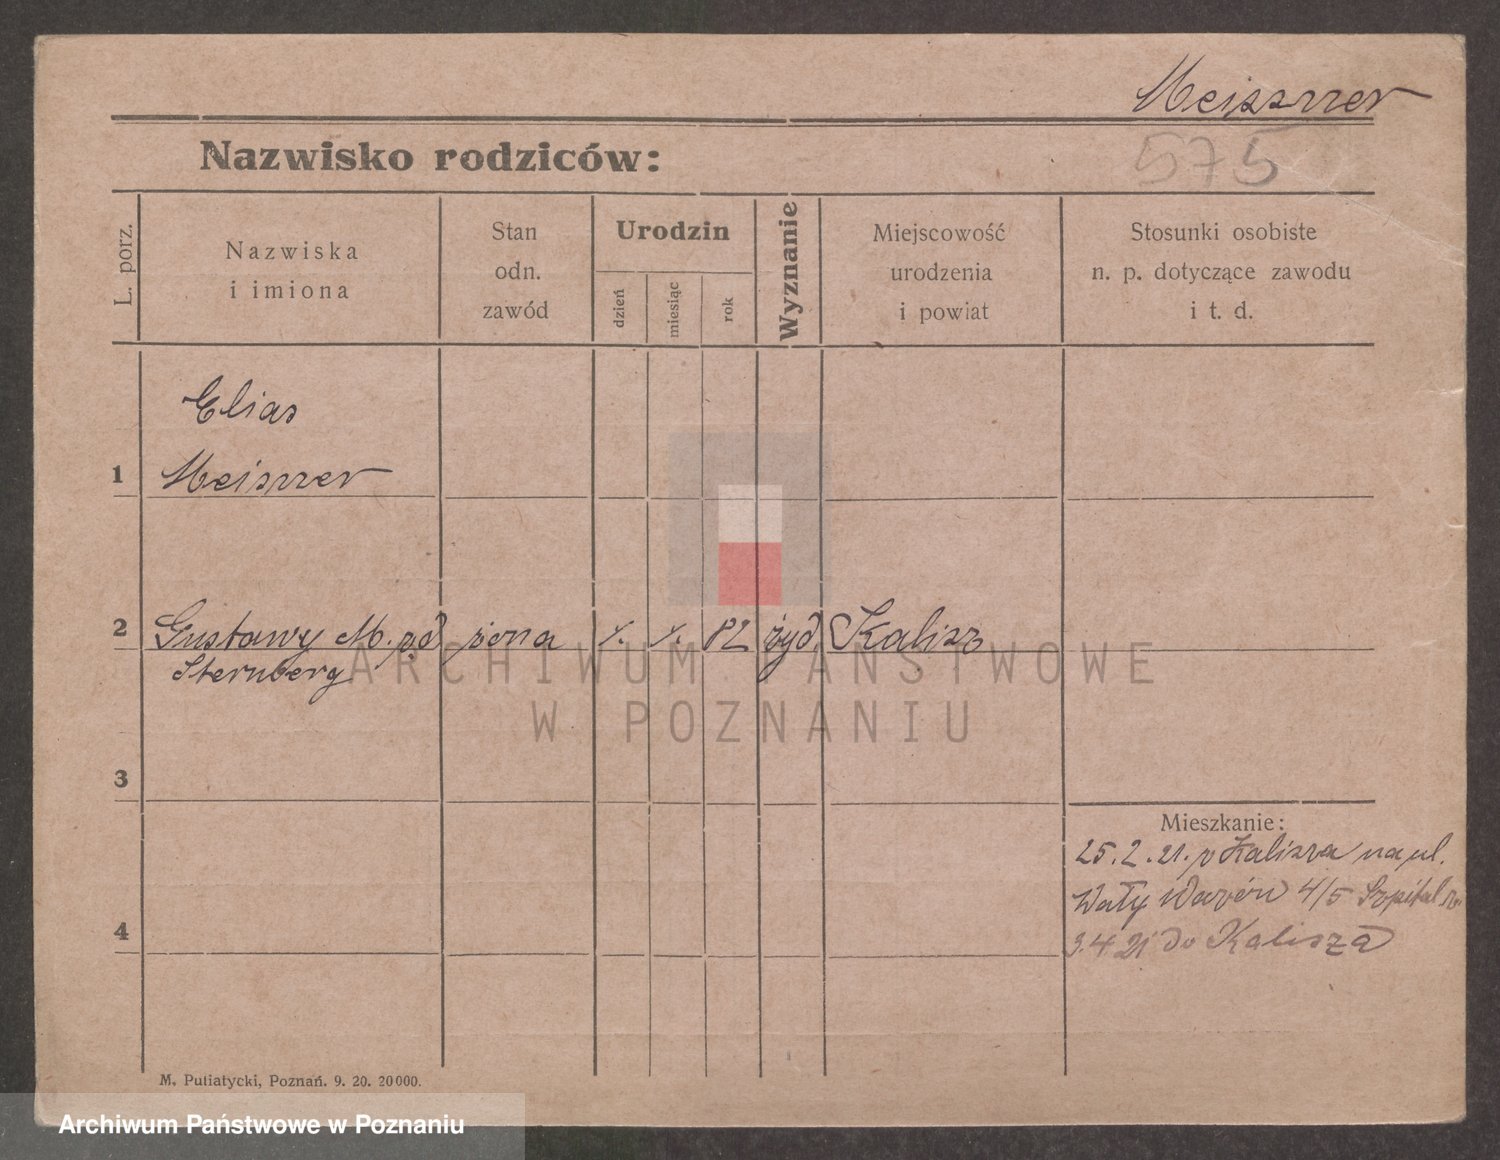 Meissner
575
Nazwisko rodziców:
L. porz.
Nazwiska
i imiona
Stan
odn.
zawód
Urodzin
dzień
miesiąc
rok
Wyznanie
Miejscowość
urodzenia
i powiat
Stosunki osobiste
n. p. dotyczące zawodu
i t. d.
Elias
1 Meisner
2 Gustawy M. żona 82 żyd. Kalisz
Sternberg
ARCHIWUM PAŃSTWOWE
W POZNANIU
3
Mieszkanie:
25.2.21. z Kalisza na ul.
4 Wały 4/5 Szpital
3.4 21 do Kalisza
M. Putiatycki, Poznań. 9. 20. 20000.
Archiwum Państwowe w Poznaniu